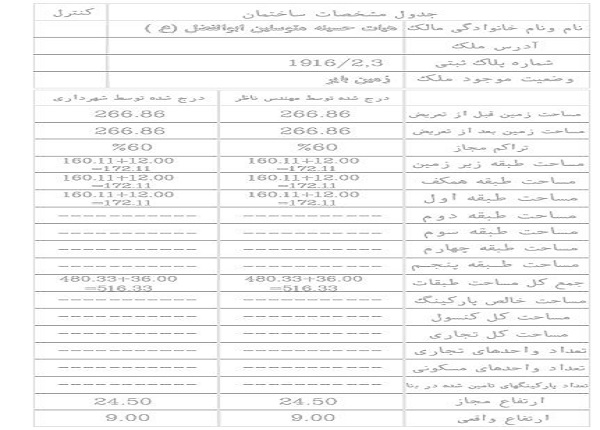 جدول مشخصات ساختمان کنترل
نام ونام خانوادگی مالک هیات حسینه متوسلین ابوالفضل (ع)
آدرس ملک
شماره پلاک ثبتی 1916/2,3
وضعیت موجود ملک زمین بایر
درج شده توسط مهندس ناظر درج شده توسط شهرداری
مساحت زمین قبل از تعریض 266.86 266.86
مساحت زمین بعد از تعریض 266.86 266.86
تراکم مجاز %60 %60
مساحت طبقه زیر زمین 160.11+12.00 =172.11 160.11+12.00 =172.11
مساحت طبقه همکف 160.11+12.00 =172.11 160.11+12.00 =172.11
مساحت طبقه اول 160.11+12.00 =172.11 160.11+12.00 =172.11
مساحت طبقه دوم ----------- -----------
مساحت طبقه سوم ----------- -----------
مساحت طبقه چهارم ----------- -----------
مساحت طبقه پنجم ----------- -----------
جمع کل مساحت طبقات 480.33+36.00 =516.33 480.33+36.00 =516.33
مساحت خالص پارکینگ ----------- -----------
مساحت کل کنسول ----------- -----------
مساحت کل تجاری ----------- -----------
تعداد واحدهای تجاری ----------- -----------
تعداد واحدهای مسکونی ----------- -----------
تعداد پارکینگهای تامین شده در بنا ----------- -----------
ارتفاع مجاز 24.50 24.50
ارتفاع واقعی 9.00 9.00